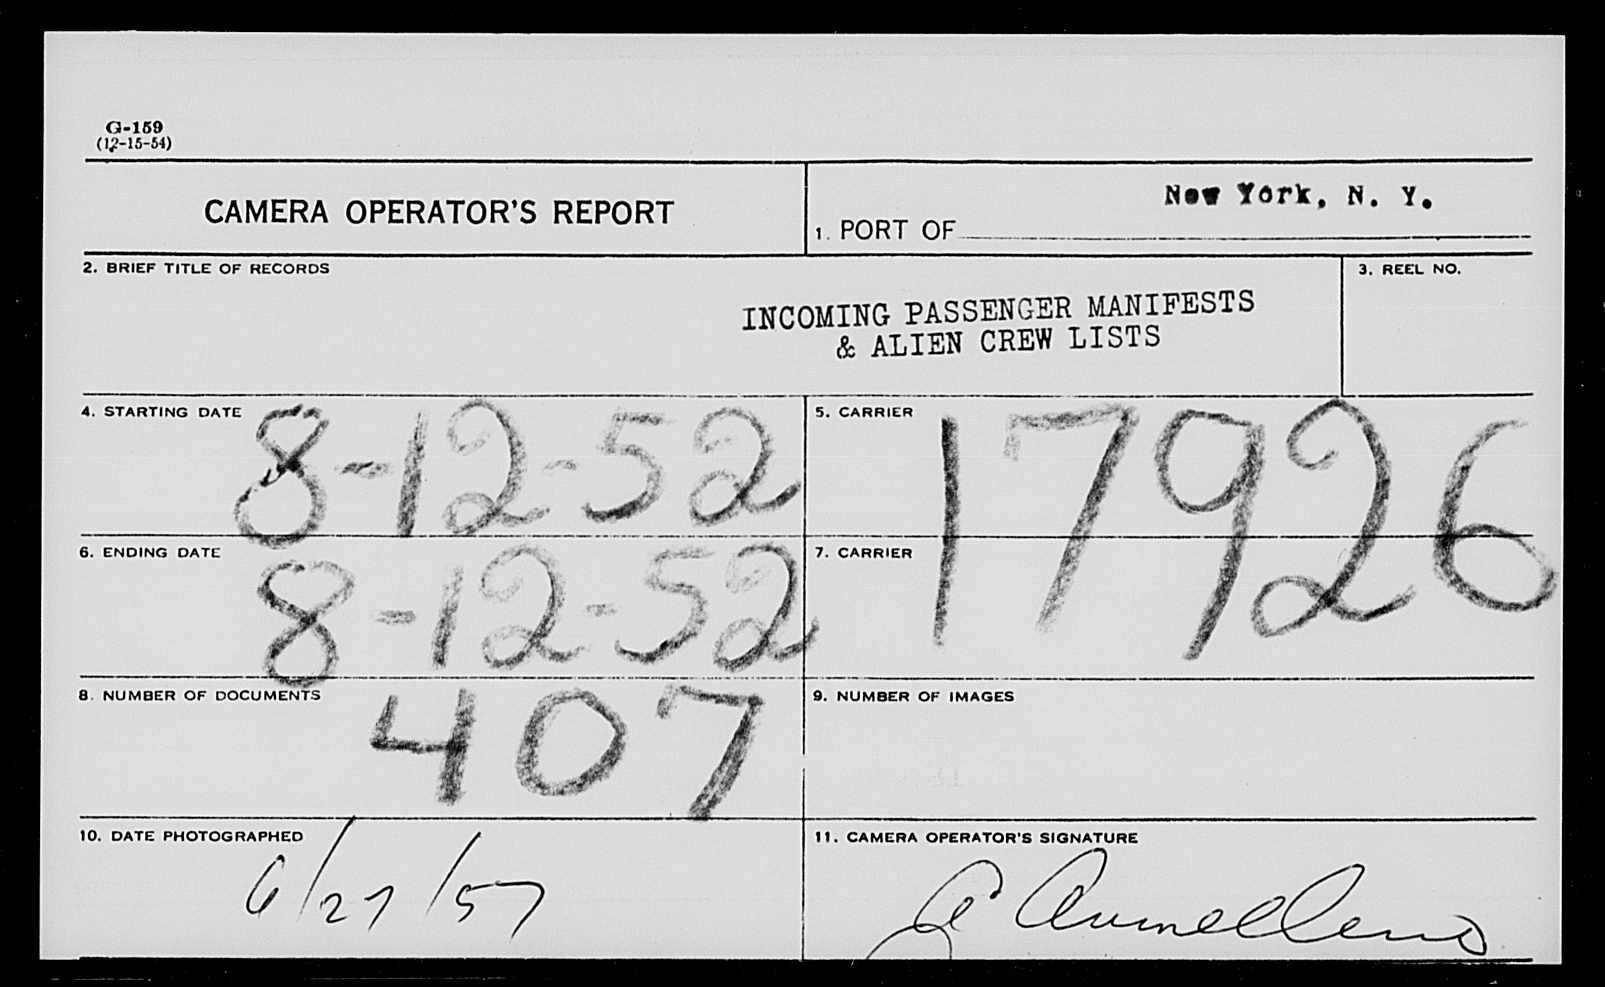 G-159
(12-15-54)
CAMERA OPERATOR'S REPORT
1. PORT OF New York, N. Y.
2. BRIEF TITLE OF RECORDS
INCOMING PASSENGER MANIFESTS
& ALIEN CREW LISTS
3. REEL NO.
4. STARTING DATE 8-12-52
5. CARRIER 17926
6. ENDING DATE 8-12-52
7. CARRIER
8. NUMBER OF DOCUMENTS 407
9. NUMBER OF IMAGES
10. DATE PHOTOGRAPHED 6/27/57
11. CAMERA OPERATOR'S SIGNATURE